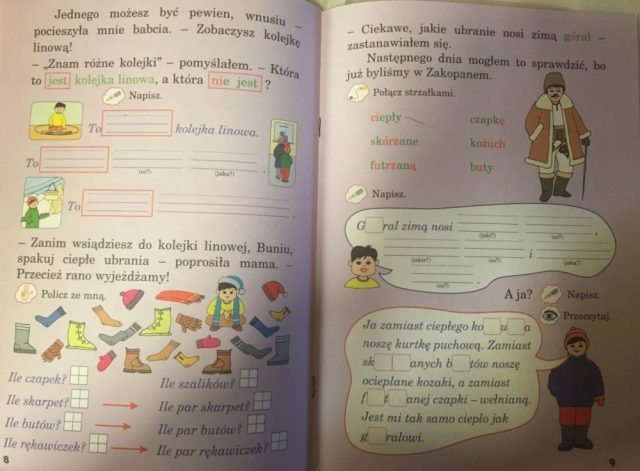 Jednego możesz być pewien, wnusiu –
pocieszyła mnie babcia. – Zobaczysz kolejkę
linową!
– „Znam różne kolejki” – pomyślałem. – Która
to jest kolejka linowa, a która nie jest ?
Napisz.
To kolejka linowa.
To
(co?) (jaka?)
To .
– Zanim wsiądziesz do kolejki linowej, Buniu,
spakuj ciepłe ubrania – poprosiła mama. –
Przecież rano wyjeżdżamy!
Policz ze mną.
Ile czapek? Ile szalików?
Ile skarpet? Ile par skarpet?
Ile butów? Ile par butów?
Ile rękawiczek? Ile par rękawiczek?
8
– Ciekawe, jakie ubranie nosi zimą góral –
zastanawiałem się.
Następnego dnia mogłem to sprawdzić, bo
już byliśmy w Zakopanem.
Połącz strzałkami.
ciepły czapkę
skórzane kożuch
futrzaną buty
Napisz.
G ral zimą nosi ,
(jaki?) (co?)
i
(jakie?) (co?) (jaką?)
.
(co?)
A ja? Napisz.
Przeczytaj.
Ja zamiast ciepłego ko u a
noszę kurtkę puchową. Zamiast
sk anych b tów noszę
ocieplane kozaki, a zamiast
f t anej czapki – wełnianą.
Jest mi tak samo ciepło jak
g ralowi.
9